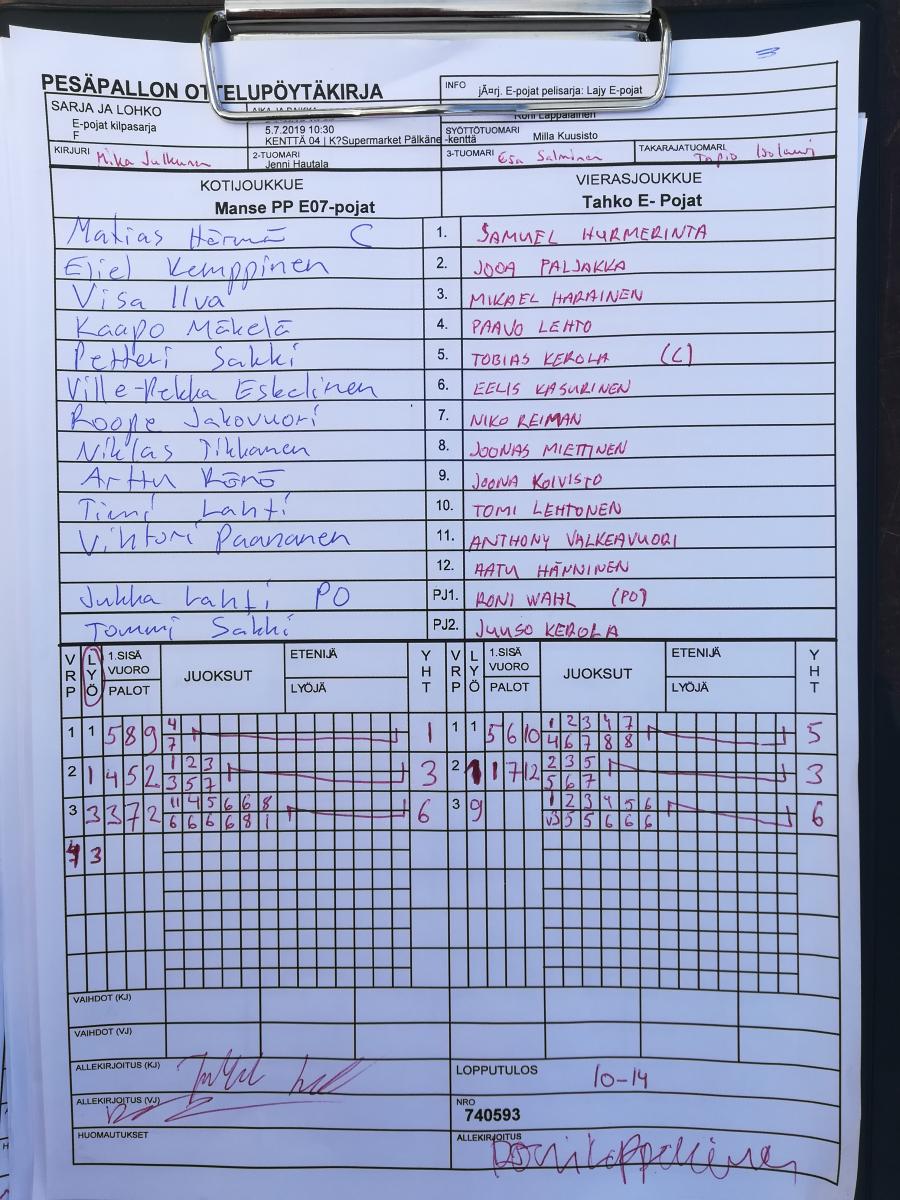 PESÄPALLON OTTELUPÖYTÄKIRJA
INFO jÃ¤rj. E-pojat pelisarja: Lajy E-pojat
SARJA JA LOHKO
E-pojat kilpasarja
F
5.7.2019 10:30
KENTTÄ 04 | K?Supermarket Pälkäne -kenttä
Roni Lappalainen
SYÖTTÖTUOMARI Milla Kuusisto
KIRJURI Mika Julkunen
2-TUOMARI
Jenni Hautala
3-TUOMARI Esa Salminen
TAKARAJATUOMARI Tapio
KOTIJOUKKUE VIERASJOUKKUE
Manse PP E07-pojat Tahko E- Pojat
Matias Härmä C 1. SAMUEL HYRMERINTA
Eliel Kemppinen 2. JOOA PALJAKKA
Visa Ilva 3. MIKAEL HARAINEN
Kaapo Mäkelä 4. PAAVO LEHTO
Petteri Sakki 5. TOBIAS KEROLA (C)
Ville-Pekka Eskelinen 6. EELIS KASURINEN
Roope Jakovuori 7. NIKO REIMAN
Niklas Tikkanen 8. JOONAS MIETTINEN
Arttu Rönö 9. JOONA KOIVISTO
Timi Lahti 10. TOMI LEHTONEN
Vihtori Paananen 11. ANTHONY VALKEAVUORI
12. AATU HÄNNINEN
Jukka Lahti PO PJ1. RONI WAHL (PO)
Tommi Sakki PJ2. JUUSO KEROLA
VRP LYÖ 1.SISÄ VUORO PALOT JUOKSUT ETENIJÄ LYÖJÄ YHT VRP LYÖ 1.SISÄ VUORO PALOT JUOKSUT ETENIJÄ LYÖJÄ YHT
1 1 5 8 9 4 1 1 1 5 6 10 1 2 3 4 7 5
7 4 6 7 8 8
2 1 4 5 2 1 2 3 3 2 1 1 7 12 2 3 5 3
3 5 7 5 6 7
3 3 3 7 2 11 4 5 6 6 8 6 3 9 1 2 3 4 5 6 6
6 6 6 6 8 1 V3 5 5 6 6 6
4 3
VAIHDOT (KJ)
VAIHDOT (VJ)
ALLEKIRJOITUS (KJ) LOPPUTULOS 10-14
ALLEKIRJOITUS (VJ) NRO
740593
HUOMAUTUKSET ALLEKIRJOITUS Roni Lappalainen